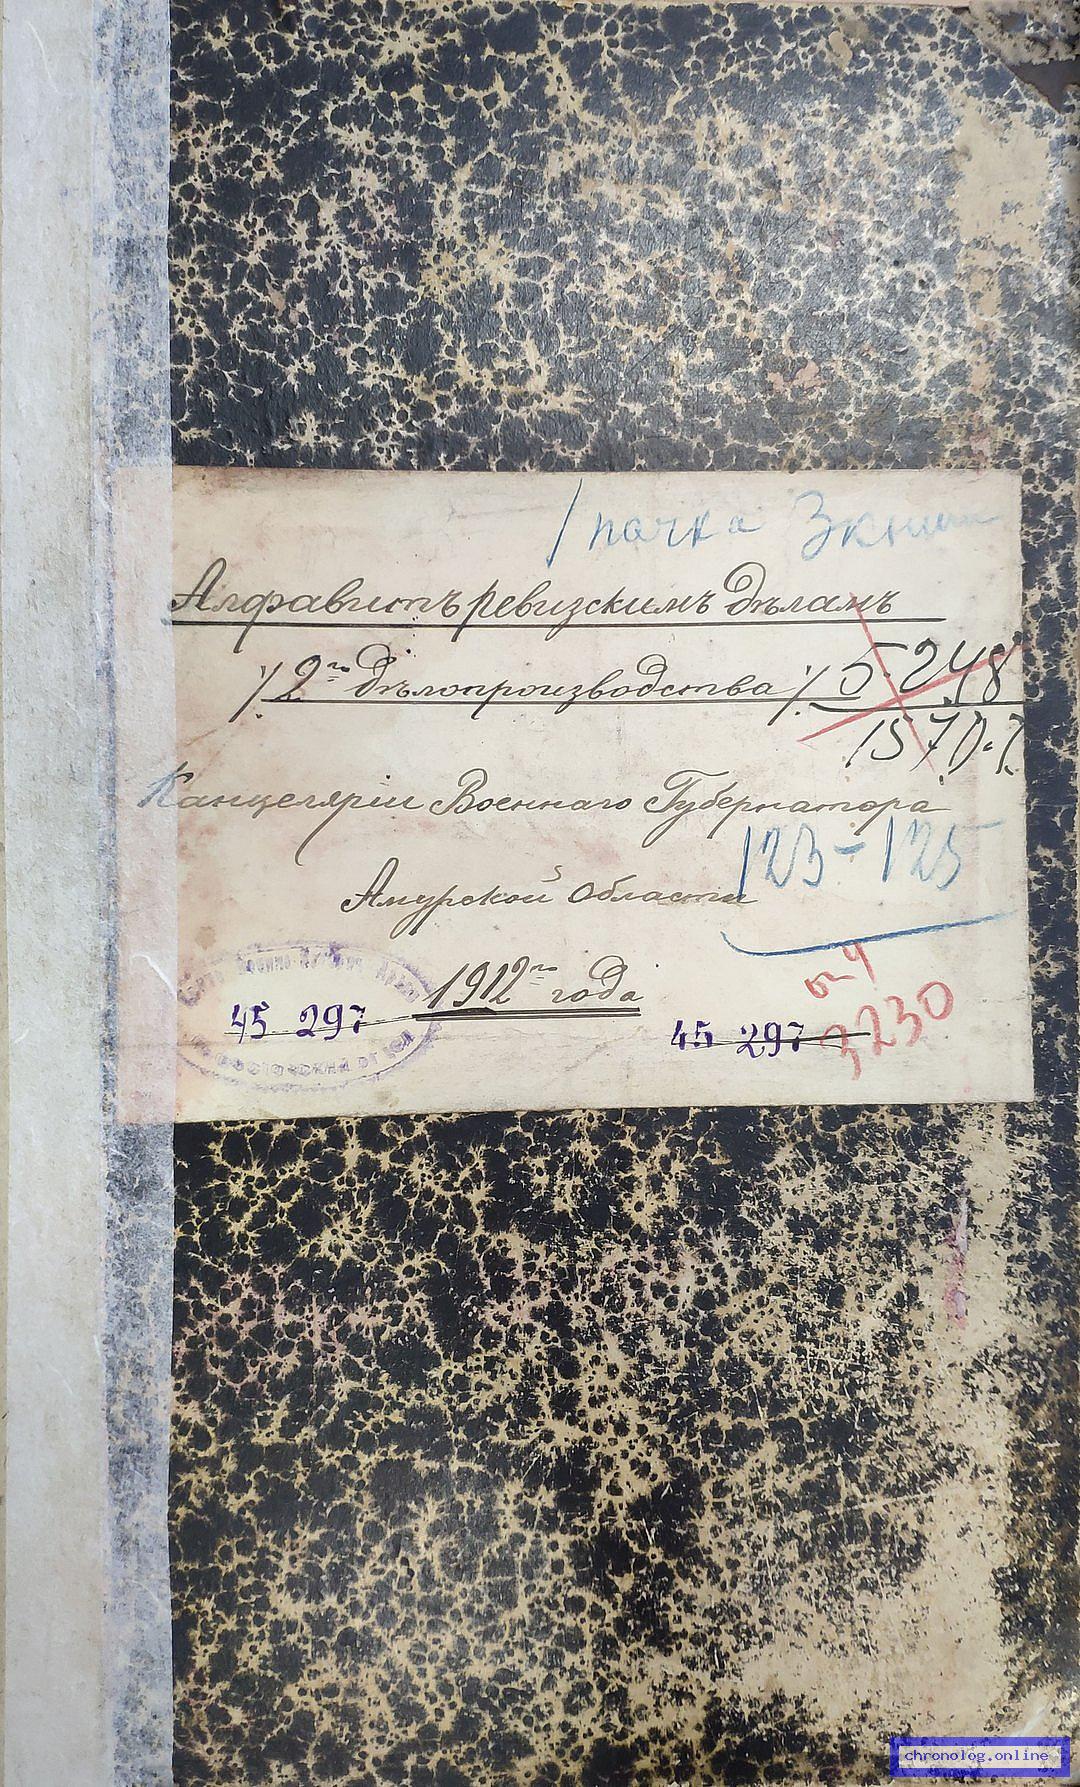 1 пачка 3 книги
Алфавитъ ревизскимъ дѣламъ
% 2го дѣлопроизводства % 5-248
1570-7
Канцеляріи Военнаго Губернатора
123-125
Амурской области
1912го года
оп 4
45 297
45 297 3230
chronolog.online